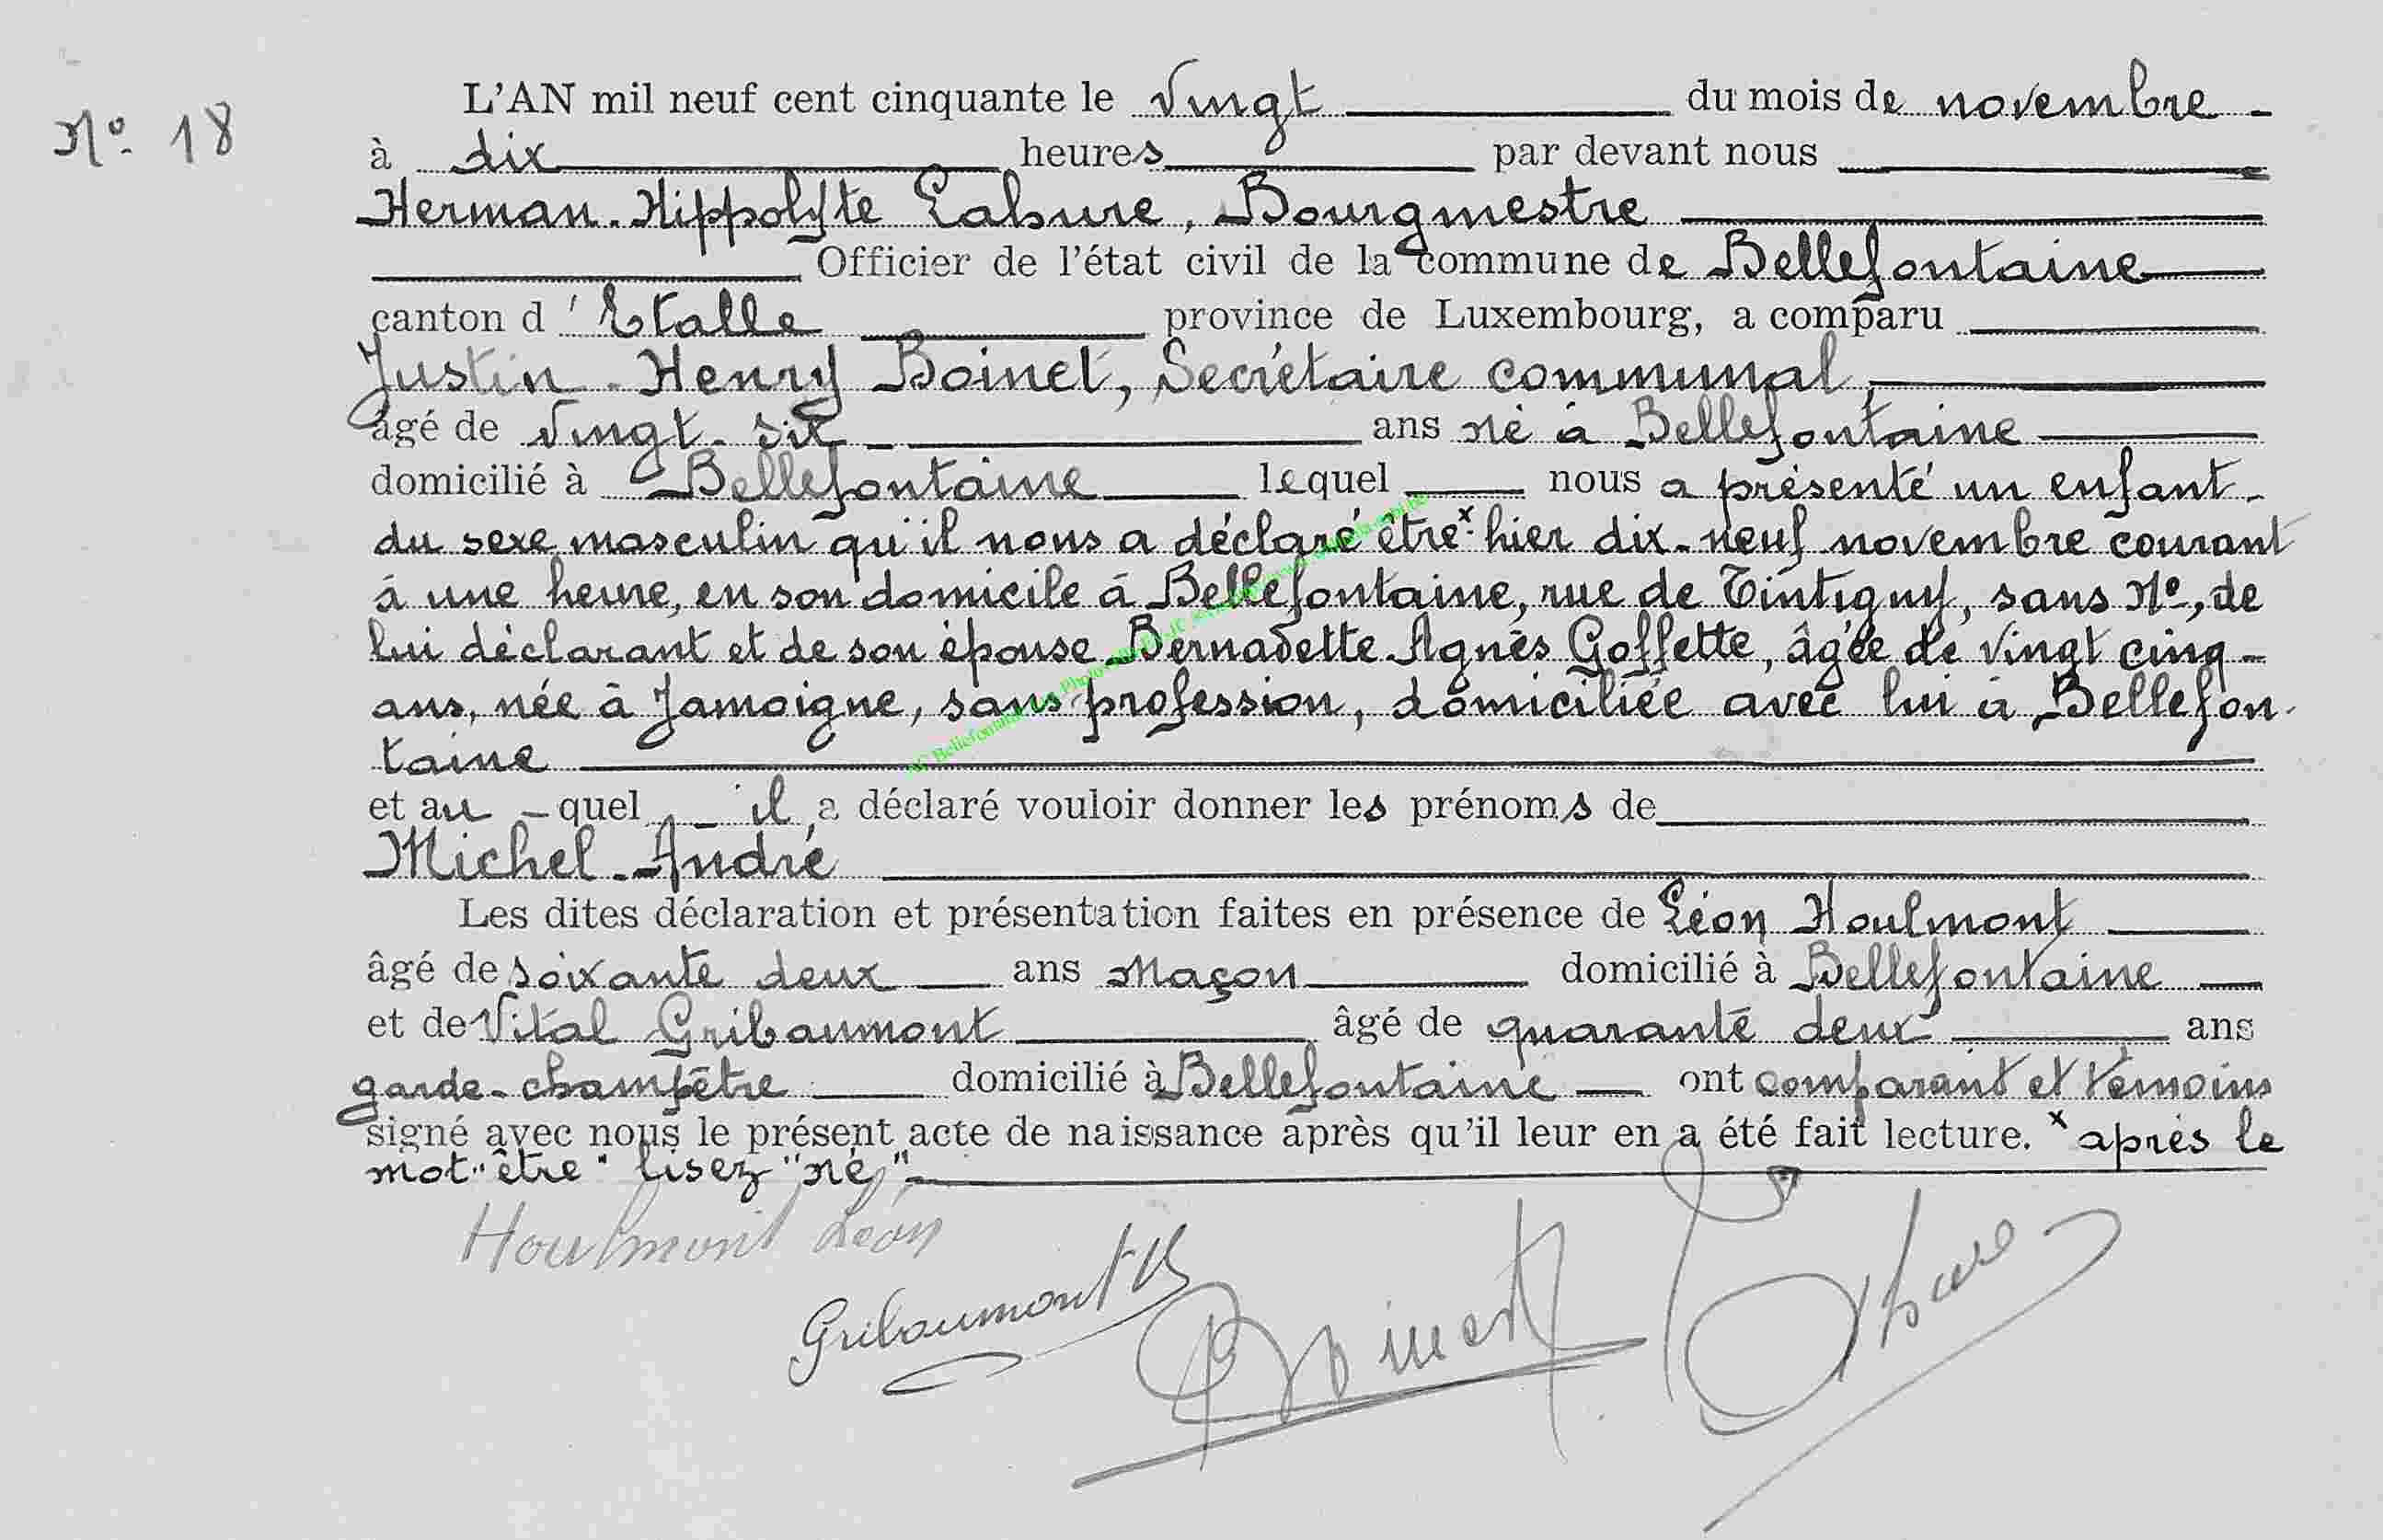 N° 18
L'AN mil neuf cent cinquante le Vingt du mois de novembre
à dix heures par devant nous
Herman-Hippolyte Lahure, Bourgmestre
Officier de l'état civil de la commune de Bellefontaine
canton d'Etalle province de Luxembourg, a comparu
Justin-Henry Boinet, Secrétaire communal,
âgé de Vingt-six ans né à Bellefontaine
domicilié à Bellefontaine lequel nous a présenté un enfant
du sexe masculin qu'il nous a déclaré être x hier dix-neuf novembre courant
à une heure, en son domicile à Bellefontaine, rue de Tintigny, sans N°, de
lui déclarant et de son épouse Bernadette-Agnès Goffette, âgée de Vingt cinq
ans, née à Jamoigne, sans profession, domiciliée avec lui à Bellefon-
taine
et au - quel il a déclaré vouloir donner les prénoms de
Michel-André
Les dites déclaration et présentation faites en présence de Léon Houlmont
âgé de soixante deux ans Maçon domicilié à Bellefontaine
et de Vital Gribaumont âgé de quarante deux ans
garde-champêtre domicilié à Bellefontaine ont comparant et témoins
signé avec nous le présent acte de naissance après qu'il leur en a été fait lecture. x après le
mot "être" lisez "né"
Houlmont Léon
Gribaumont V
Boinet
Lahure